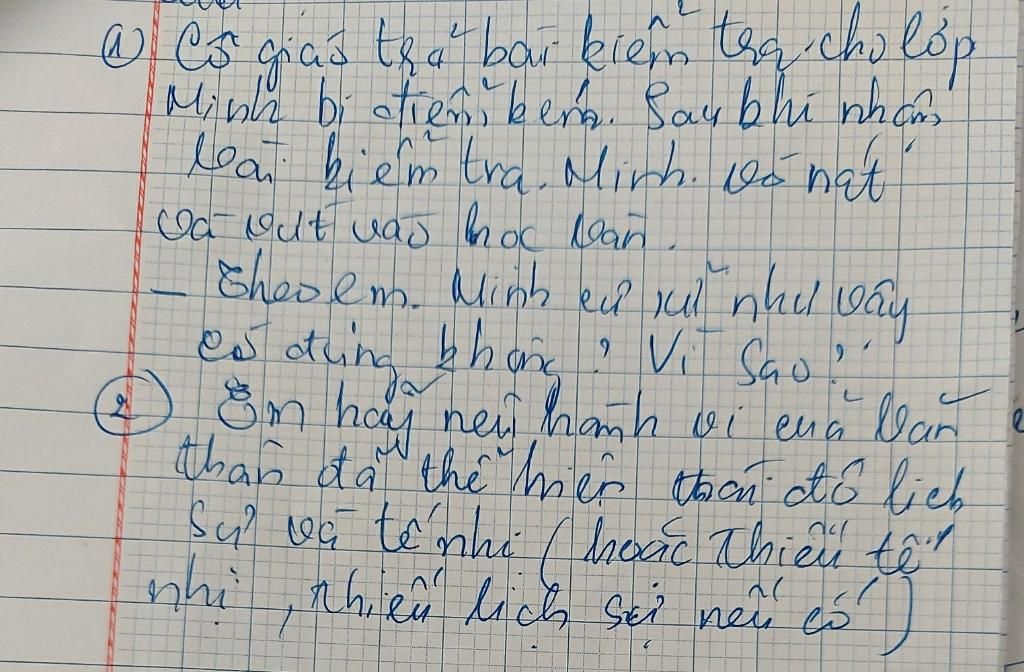 a) Cô giáo trả bài kiểm tra cho lớp
Minh bị điểm kém. Sau khi nhận
bài kiểm tra. Minh vò nát
và vứt vào học bàn.
- Theo em. Minh cư xử như vậy
có đúng không? Vì sao?
2 Em hãy nêu hành vi của bản
thân đã thể hiện thái độ lịch
sự và tế nhị (hoặc thiếu tế
nhị, thiếu lịch sự nếu có)